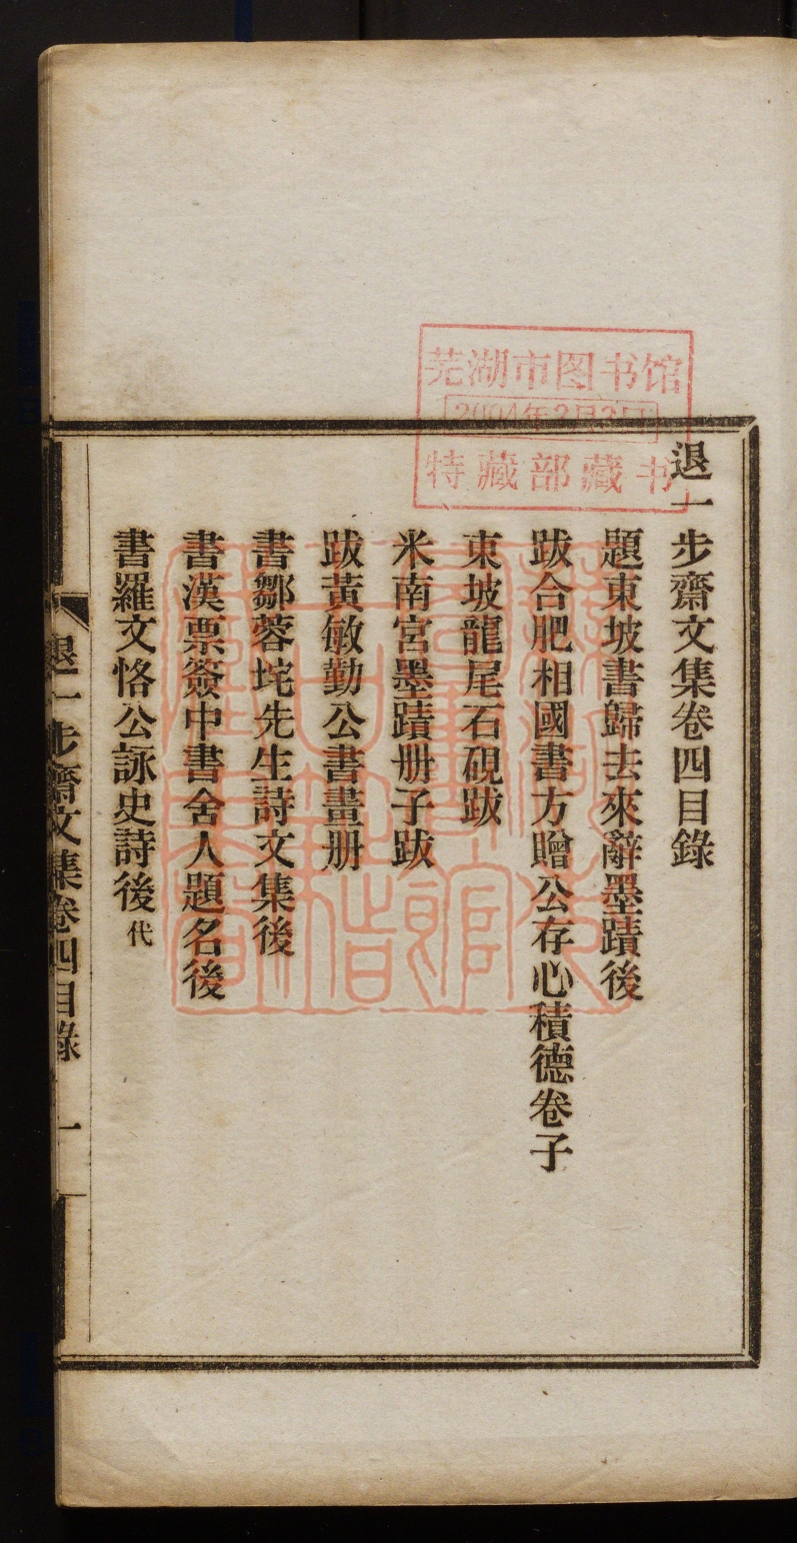 退一步齋文集卷四目錄
題東坡書歸去來辭墨蹟後
跋合肥相國書方贈公存心積德卷子
東坡龍尾石硯跋
米南宮墨蹟册子跋
跋黃敏勤公書畫册
書鄒蓉垞先生詩文集後
書漢票簽中書舍人題名後
書羅文恪公詠史詩後代
退一步齋文集卷四目錄 一
芜湖市图书馆
2004年2月2日
特藏部藏书